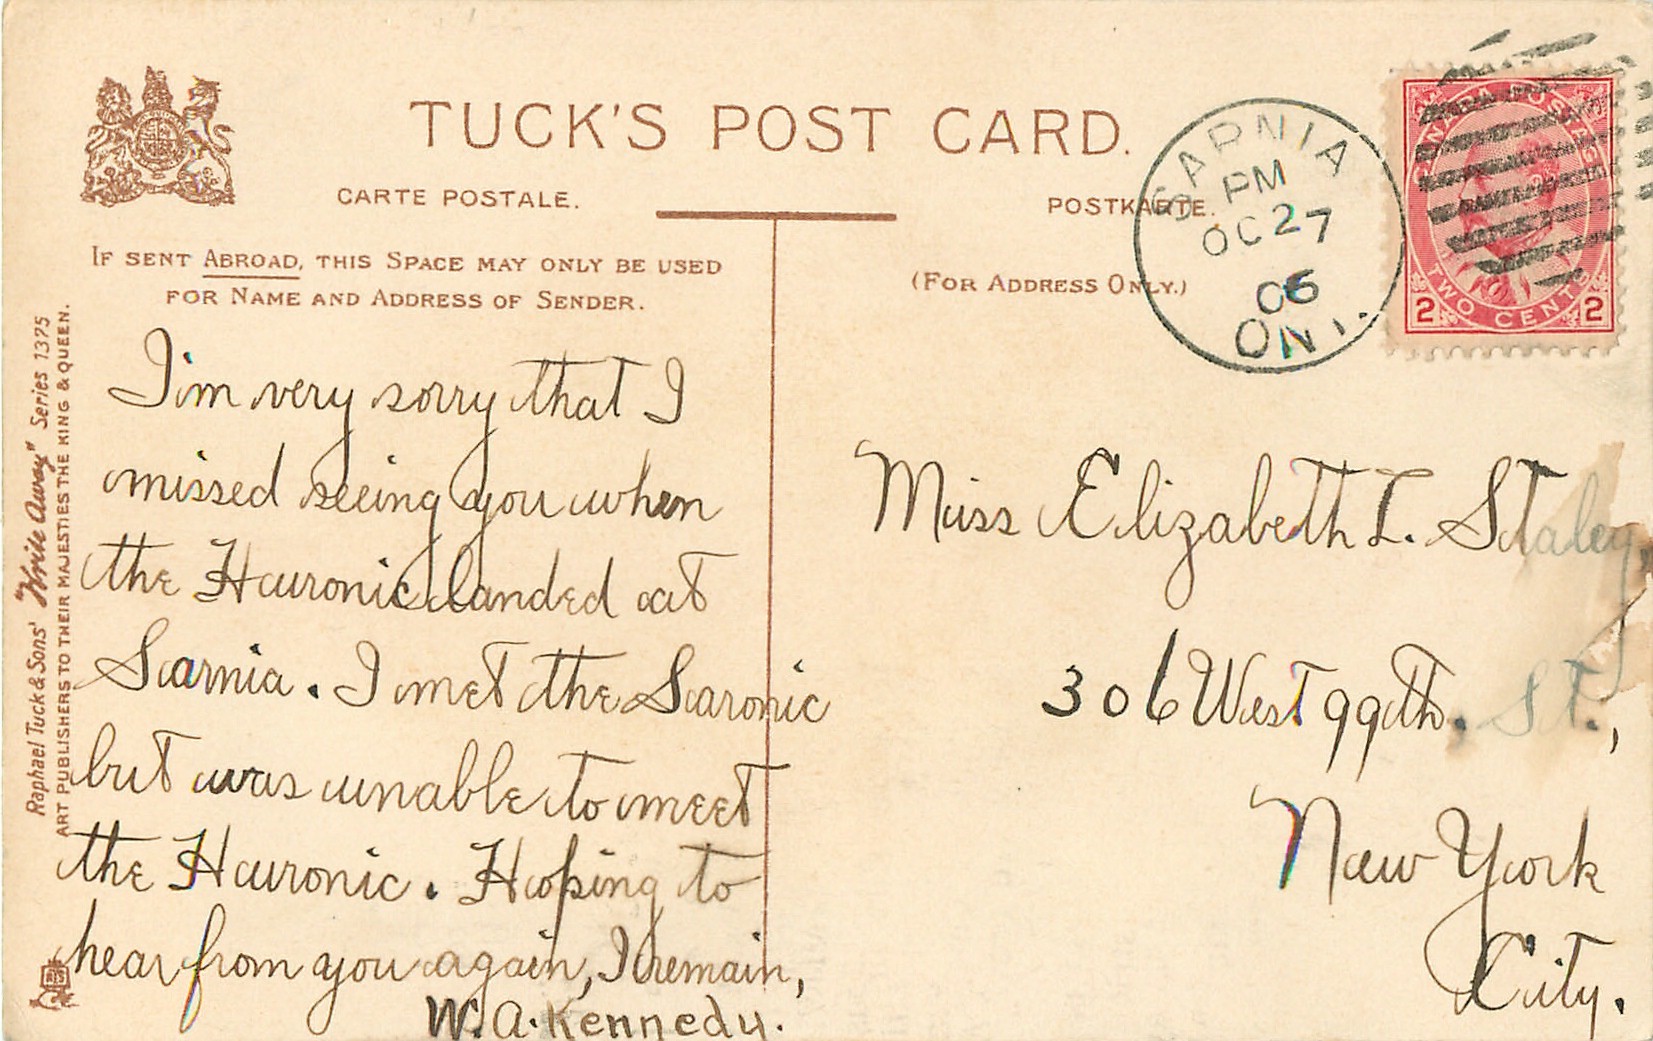 TUCK'S POST CARD.
CARTE POSTALE.
POSTKARTE.
IF SENT ABROAD, THIS SPACE MAY ONLY BE USED
FOR NAME AND ADDRESS OF SENDER.
(FOR ADDRESS ONLY.)
SARNIA
PM
OC 27
06
ONT.
CANADA POSTAGE
TWO CENTS
2 2
Raphael Tuck & Sons' "Write Away" Series 1375
ART PUBLISHERS TO THEIR MAJESTIES THE KING & QUEEN.
I'm very sorry that I
missed seeing you when
the Huronic landed at
Sarnia. I met the Saronic
but was unable to meet
the Huronic. Hoping to
hear from you again, I remain,
W. A. Kennedy.
Miss Elizabeth L. Staley,
306 West 99th. St.,
New York
City.